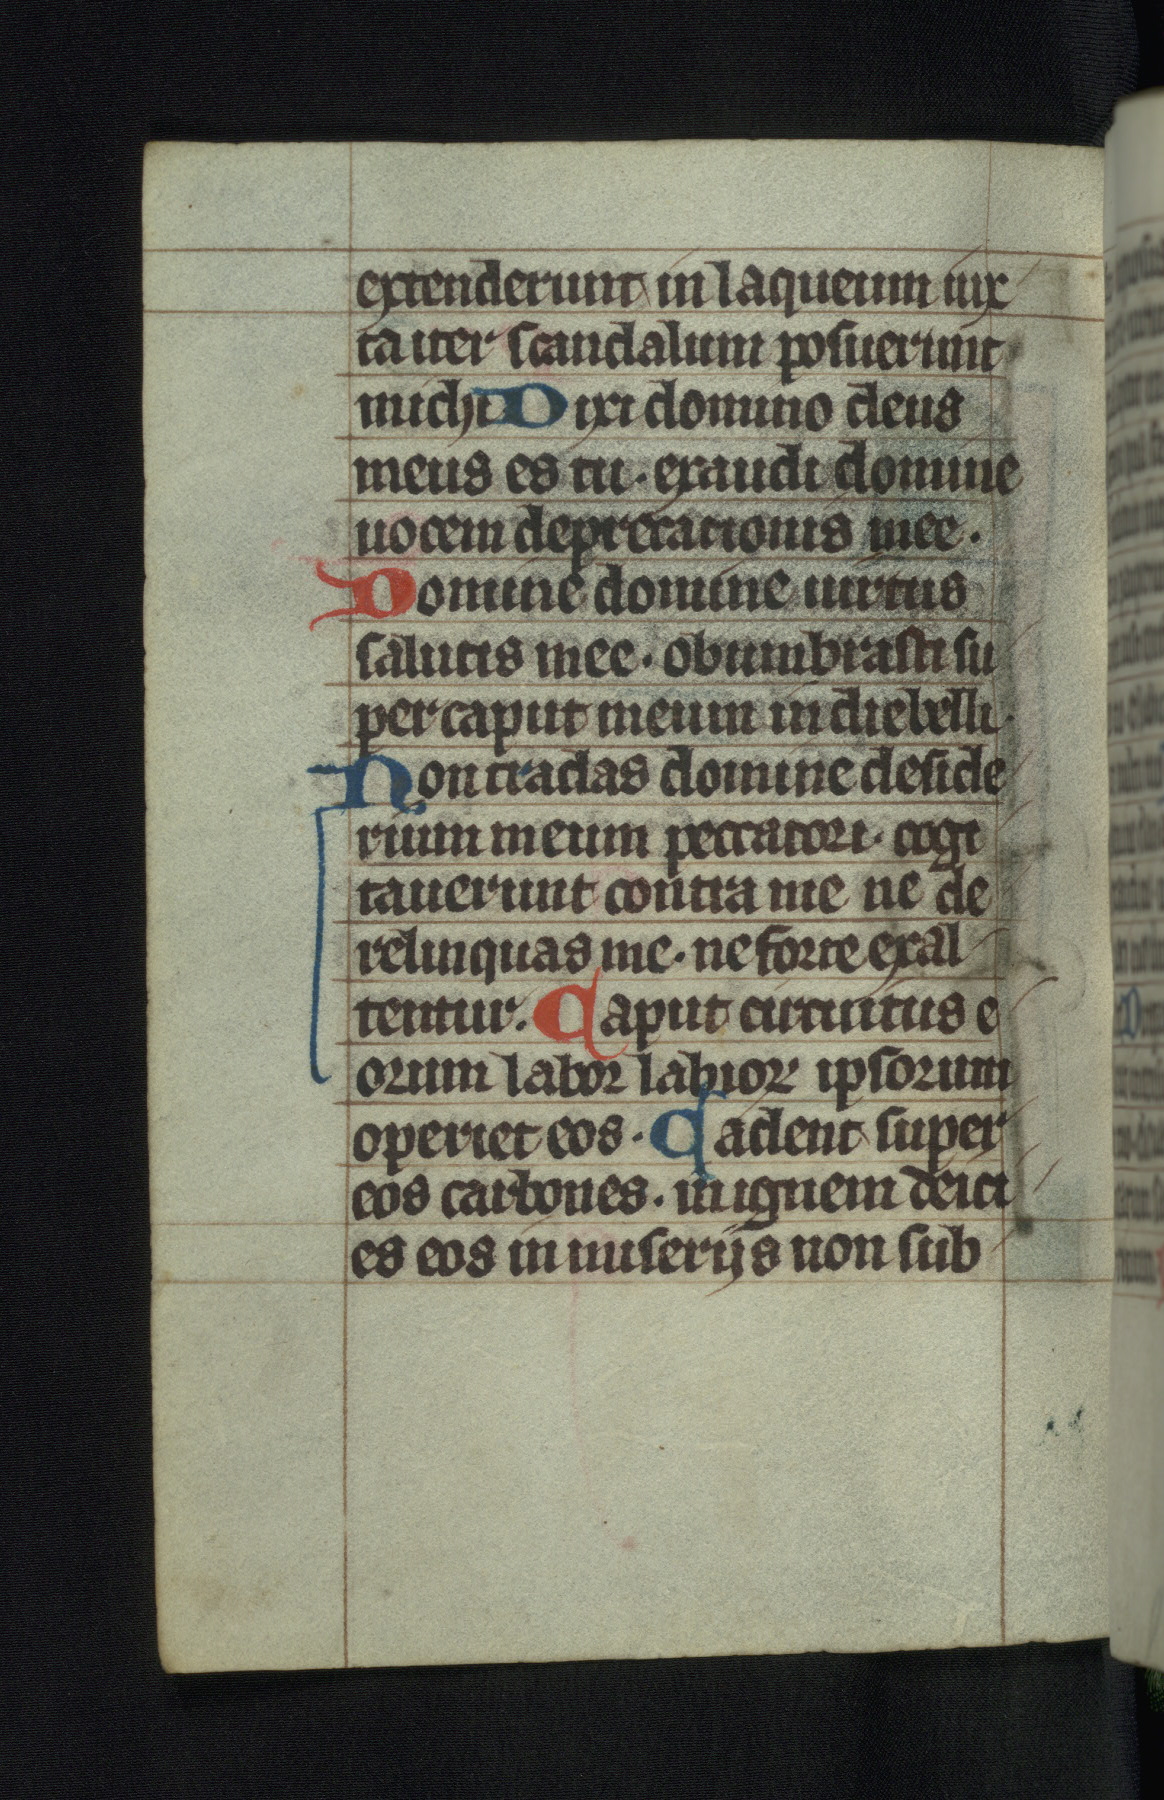 extenderunt in laqueum iux
ta iter scandalum posuerunt
michi Dixi domino deus
meus es tu · exaudi domine
uocem deprecationis mee ·
Domine domine uirtus
salutis mee · obumbrasti su
per caput meum in die belli ·
Non tradas domine deside
rium meum peccatori · cogi
tauerunt contra me ne de
relinquas me · ne forte exal
tentur. Caput circuitus e
orum labor labior ipsorum
operiet eos · Cadent super
eos carbones · in ignem deici
es eos in miserijs non sub